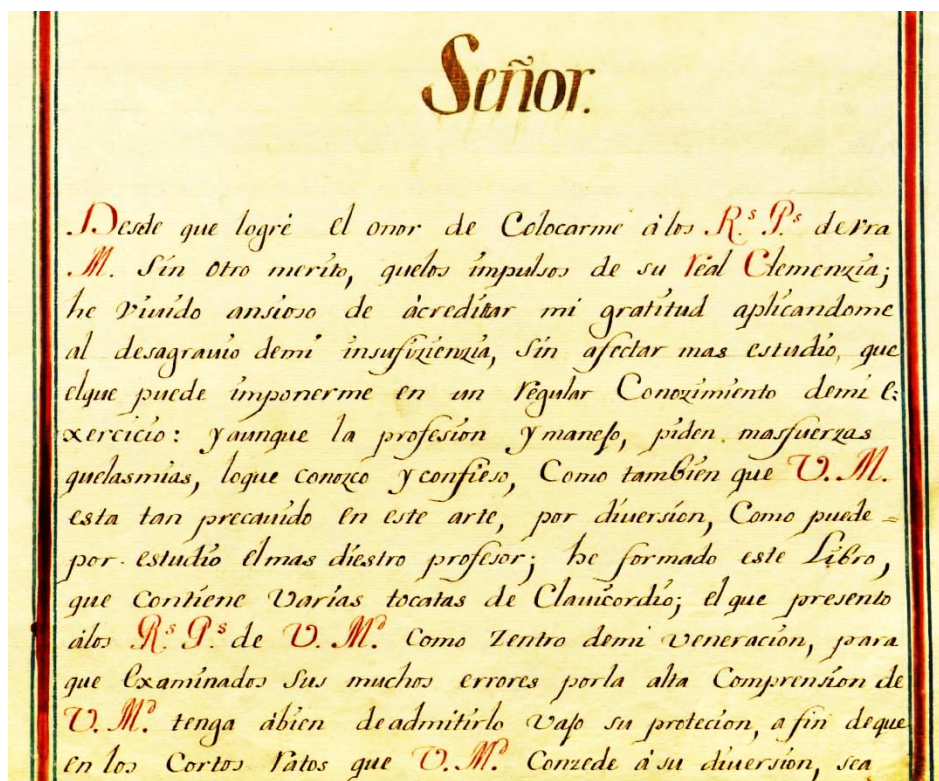 Señor.
Desde que logrè el onor de Colocarme â los R.ˢ P.ˢ de Vra
M. Sin otro merito, quelos impulsos de su real Clemenzia;
he viuido ansioso de àcreditar mi gratitud aplicandome
al desagrauio demi insufizienzia, Sin afectar mas estudio, que
elque puede imponerme en un regular Conozimiento demi e:
xercicio: y aunque la profesion y manejo, piden masfuerzas
quelasmias, loque conozco y confieso, Como tambien que V. M.
esta tan precauido en este arte, por diuersion, Como puede =
por estudio elmas diestro profesor; he formado este Libro,
que Contiene Varias tocatas de Clauicordio; el que presento
âlos R.ˢ P.ˢ de V. M.ᵈ Como Zentro demi veneracion, para
que Examinados Sus muchos errores porla alta Comprension de
V. M.ᵈ tenga âbien deadmitirlo Vajo su protecion, a fin deque
en los Cortos ratos que V. M.ᵈ Conzede â su diuersion, sea